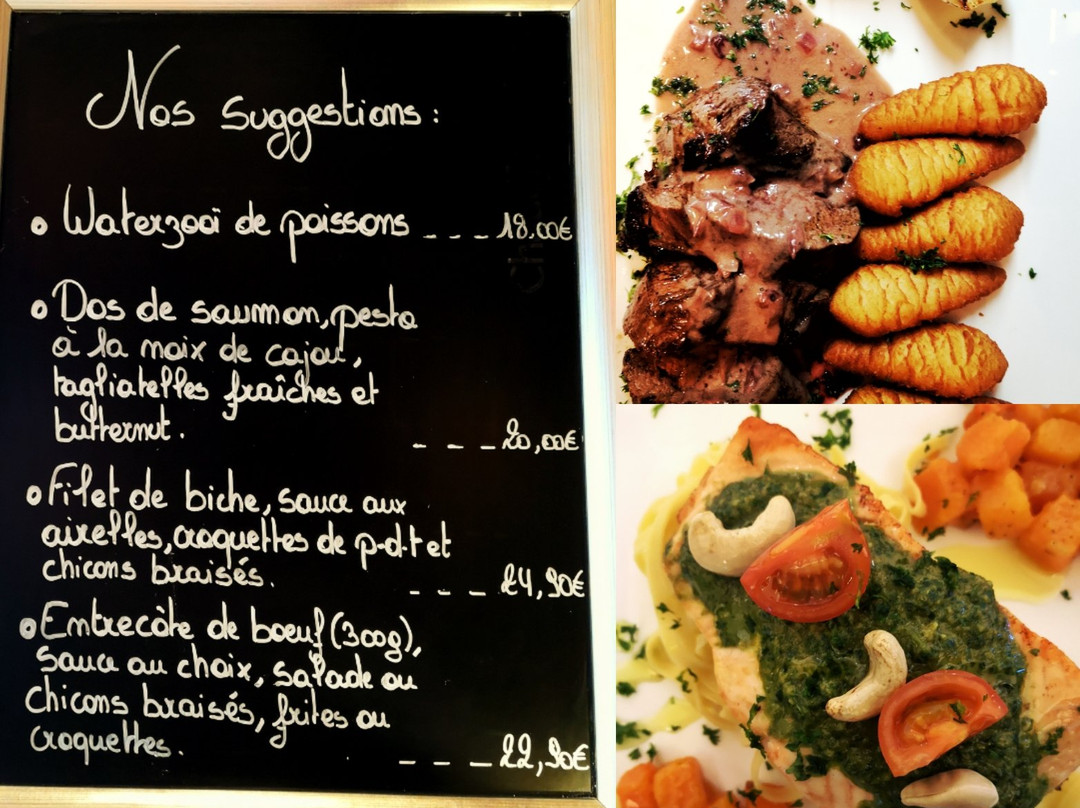 Nos suggestions :
• Waterzooï de poissons _ _ _ 18,00€
• Dos de saumon, pesto
à la noix de cajou,
tagliatelles fraîches et
butternut. _ _ _ 20,00€
• Filet de biche, sauce aux
airelles, croquettes de p.d.t et
chicons braisés. _ _ _ 24,90€
• Entrecôte de boeuf (300g),
sauce au choix, salade ou
chicons braisés, frites ou
croquettes. _ _ _ 22,90€